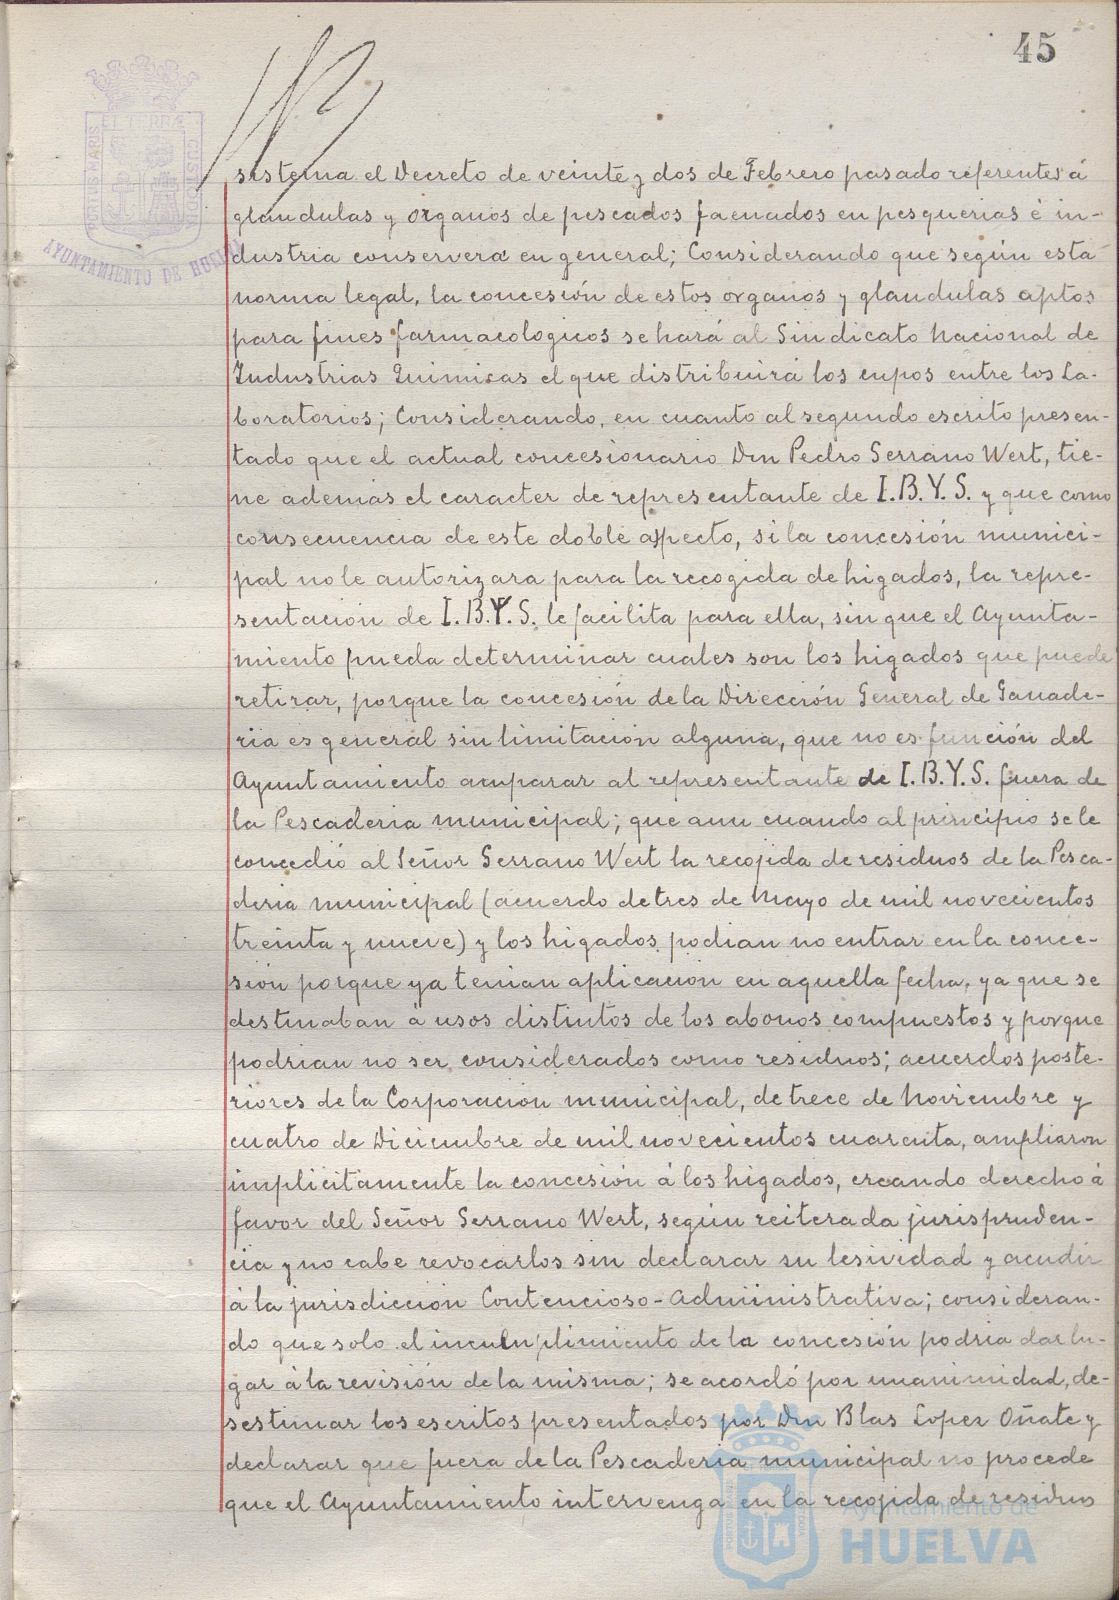 45
EL TERRÆ
PORTUS MARIS
CUSTODIA
AYUNTAMIENTO DE HUELVA
sistema el Decreto de veinte y dos de Febrero pasado referentes á
glandulas y organos de pescados faenados en pesquerias é in-
dustria conservera en general; Considerando que según esta
norma legal, la concesión de estos organos y glandulas aptos
para fines farmacologicos se hará al Sindicato Nacional de
Industrias Quimicas el que distribuirá los cupos entre los La-
boratorios; Considerando, en cuanto al segundo escrito presen-
tado que el actual concesionario Don Pedro Serrano Wert, tie-
ne además el caracter de representante de I.B.Y.S. y que como
consecuencia de este doble aspecto, si la concesión munici-
pal no le autorizara para la recogida de higados, la repre-
sentación de I.B.Y.S. le facilita para ella, sin que el Ayunta-
miento pueda determinar cuales son los higados que puede
retirar, porque la concesión de la Dirección General de Ganade-
ria es general sin limitación alguna, que no es función del
Ayuntamiento amparar al representante de I.B.Y.S. fuera de
la Pescaderia municipal; que aun cuando al principio se le
concedió al Señor Serrano Wert la recojida de residuos de la Pesca-
deria municipal (acuerdo de tres de Mayo de mil novecientos
treinta y nueve) y los higados podian no entrar en la conce-
sión porque ya tenian aplicación en aquella fecha, ya que se
destinaban á usos distintos de los abonos compuestos y porque
podrian no ser considerados como residuos; acuerdos poste-
riores de la Corporación municipal, de trece de Noviembre y
cuatro de Diciembre de mil novecientos cuarenta, ampliaron
implicitamente la concesión á los higados, creando derecho á
favor del Señor Serrano Wert, según reiterada jurispruden-
cia y no cabe revocarlos sin declarar su lesividad y acudir
á la jurisdicción Contencioso-Administrativa; consideran-
do que solo el incumplimiento de la concesión podria dar lu-
gar á la revisión de la misma; se acordó por unanimidad, de-
sestimar los escritos presentados por Don Blas Lopez Oñate y
declarar que fuera de la Pescaderia municipal no procede
que el Ayuntamiento intervenga en la recojida de residuos
Ayuntamiento de
HUELVA